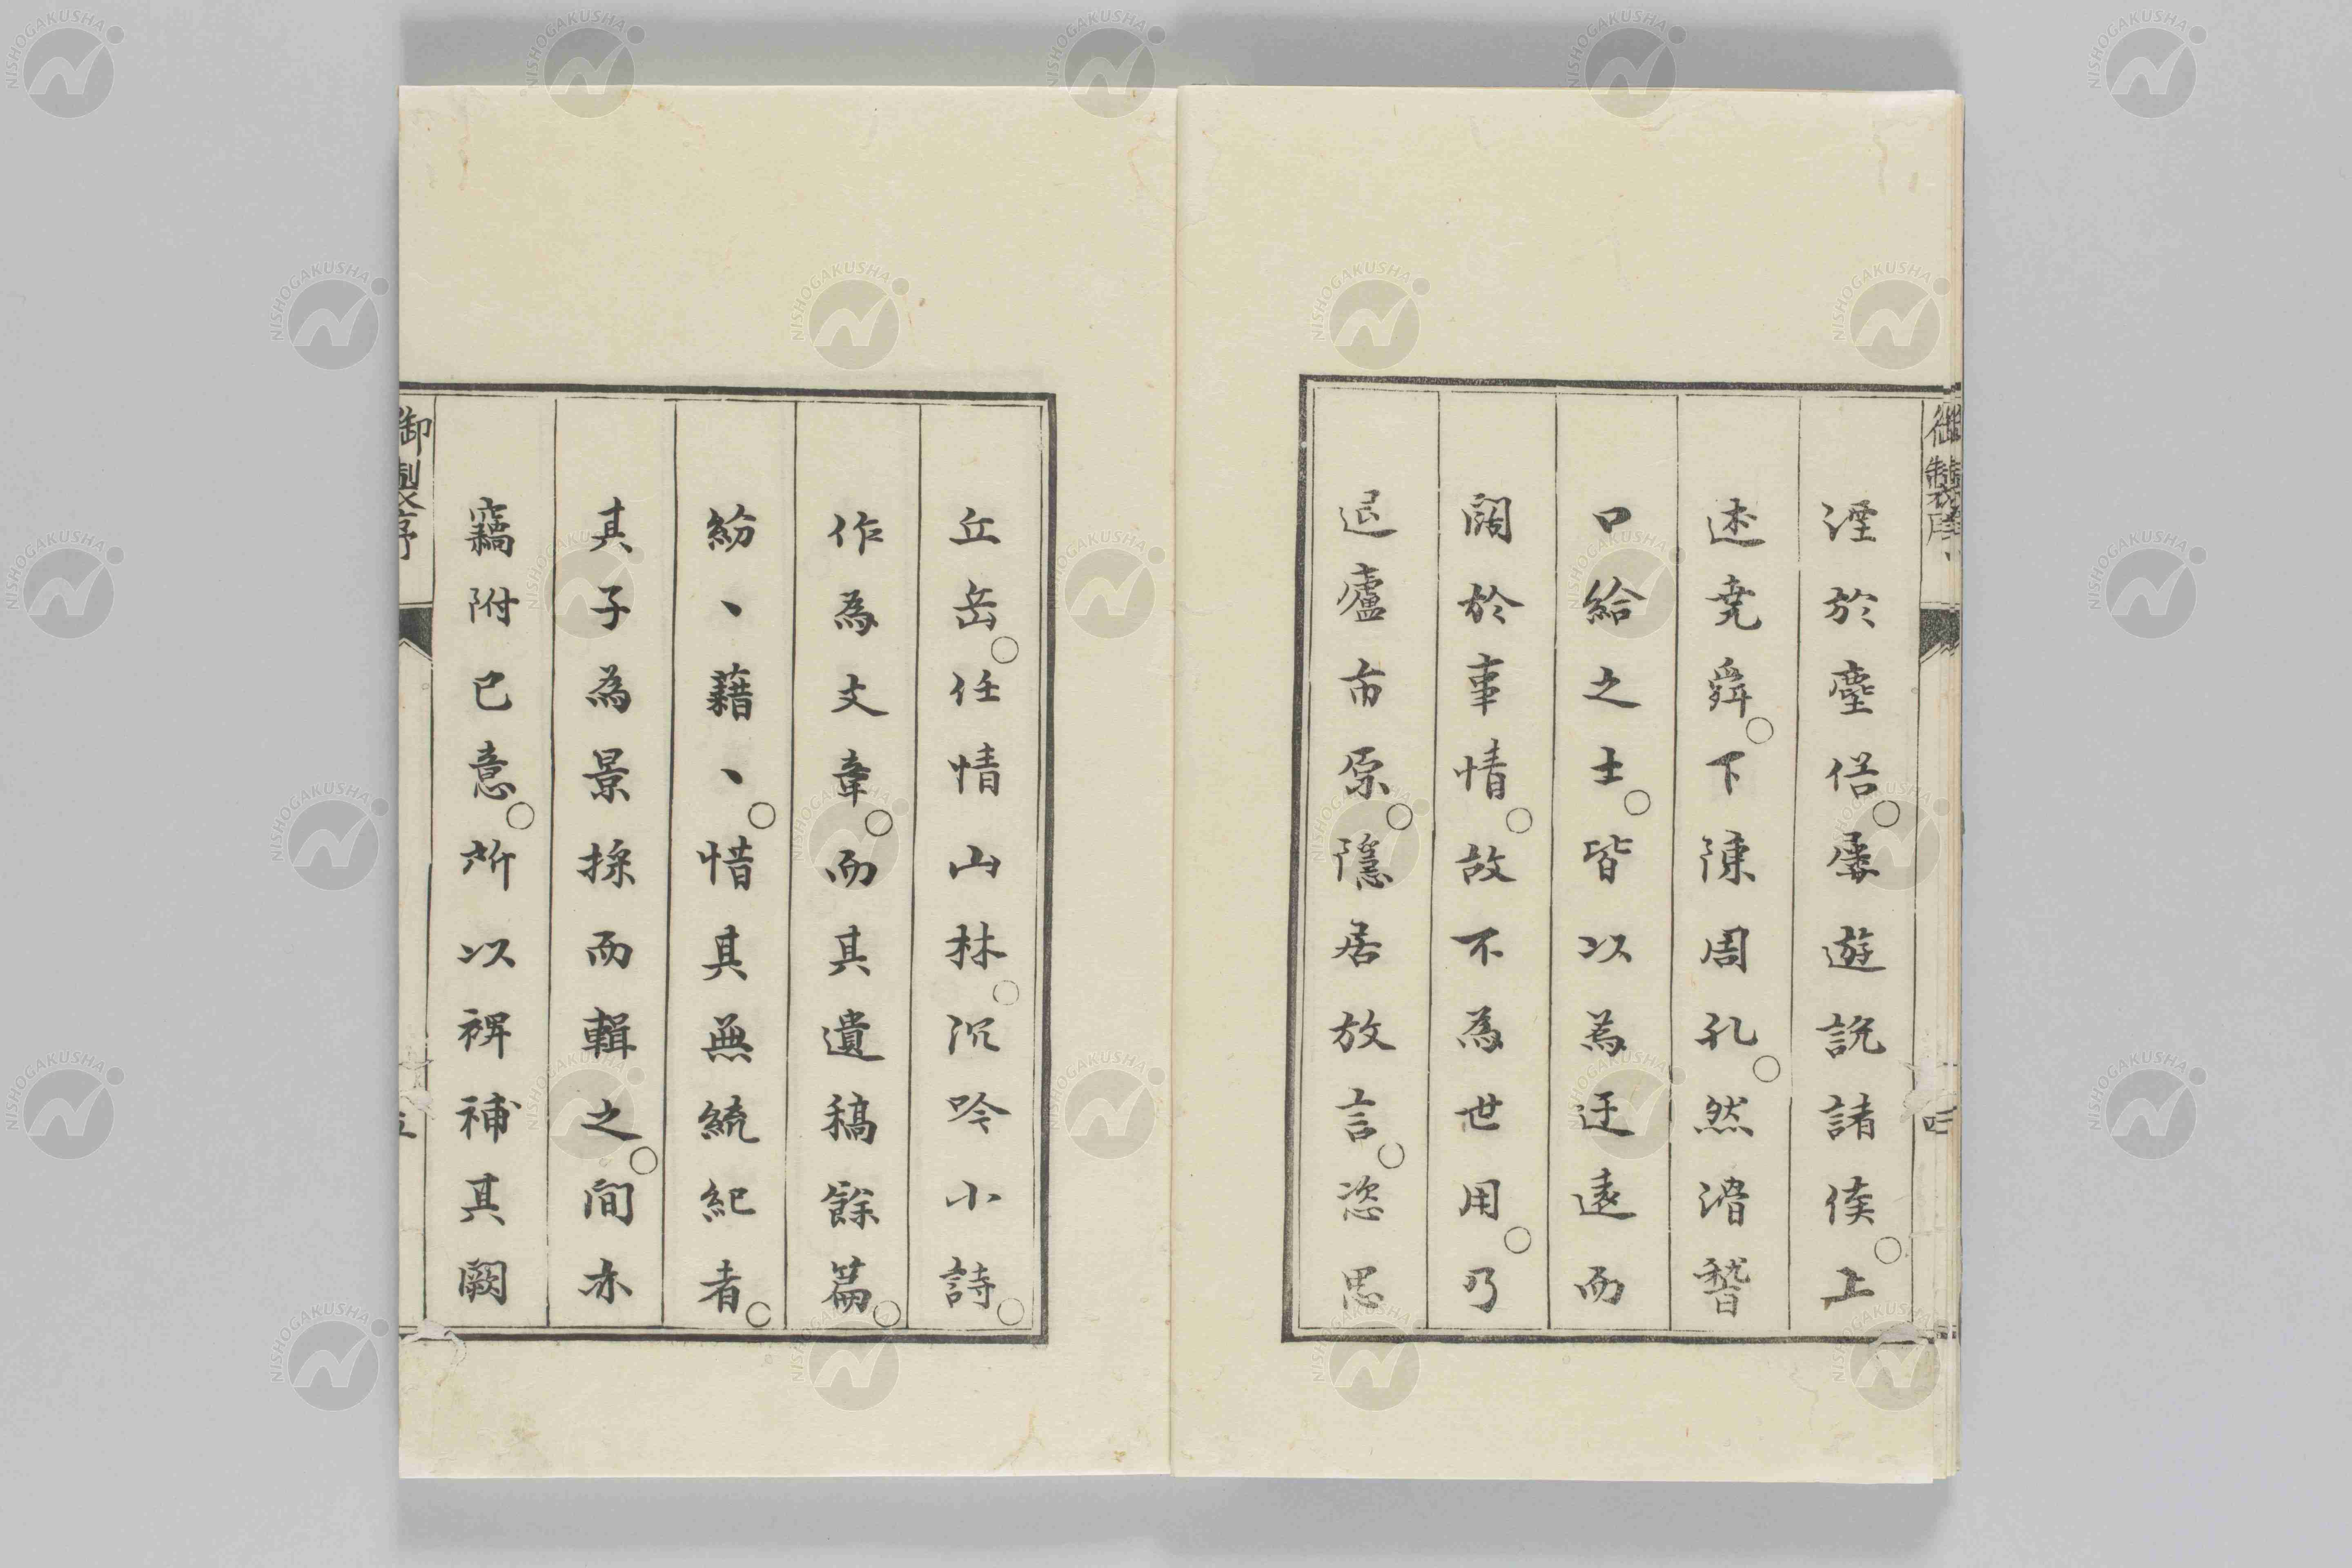 御製序
四
湮於塵俗○屡遊説諸侯○上
述堯舜○下陳周孔○然滑稽
口給之士○皆以為迂遠而
闊於事情○故不為世用○乃
退廬市原○隱居放言○恣思
丘岳○任情山林○沉吟小詩○
作為文章○而其遺稿餘篇○
紛〻藉〻○惜其無統紀者○
其子為景採而輯之○間亦
竊附己意○所以裨補其闕
御製序
五
NISHOGAKUSHA